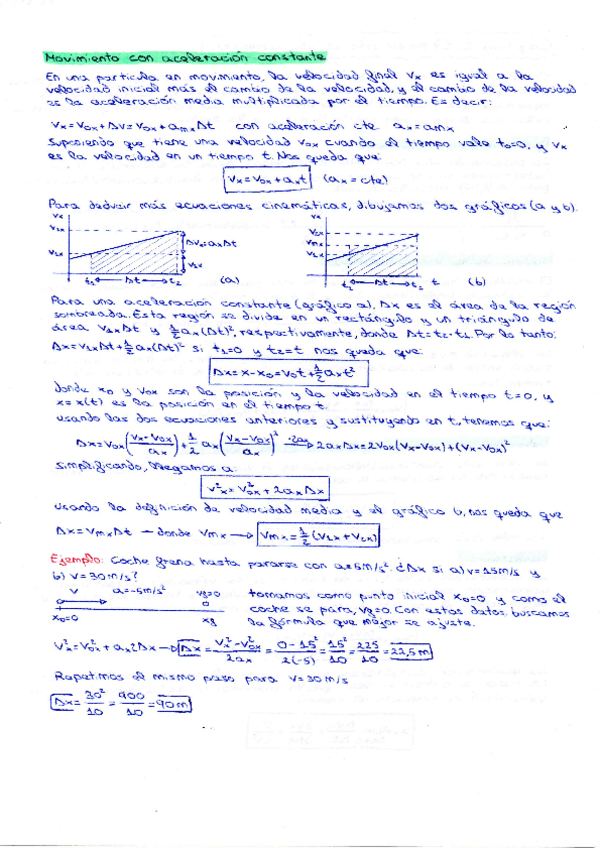 Movimiento con aceleración constante
En una partícula en movimiento, la velocidad final Vx es igual a la
velocidad inicial más el cambio de la velocidad, y el cambio de la velocidad
es la aceleración media multiplicada por el tiempo. Es decir:
Vx = V0x + ΔV = V0x + amxΔt con aceleración cte ax = amx
Suponiendo que tiene una velocidad V0x cuando el tiempo vale t0=0, y Vx
es la velocidad en un tiempo t. Nos queda que:
Vx = V0x + axt (ax = cte)
Para deducir más ecuaciones cinemáticas, dibujamos dos gráficos (a y b).
Vx Vx
V2x V2x
Vmx
V1x V1x
ΔVx=axΔt
V1x
t1 Δt t2 (a) t2 Δt t (b)
Para una aceleración constante (gráfico a), Δx es el área de la región
sombreada. Esta región se divide en un rectángulo y un triángulo de
área V1xΔt y 1/2 ax(Δt)², respectivamente, donde Δt=t2-t1. Por lo tanto:
Δx = V1xΔt + 1/2 ax(Δt)² si t1=0 y t2=t nos queda que:
Δx = x-x0 = V0t + 1/2 axt²
donde x0 y V0x son la posición y la velocidad en el tiempo t=0, y
x = x(t) es la posición en el tiempo t.
usando las dos ecuaciones anteriores y sustituyendo en t, tenemos que:
Δx = V0x((Vx-V0x)/ax) + 1/2 ax((Vx-V0x)/ax)² ·2ax → 2axΔx = 2V0x(Vx-V0x) + (Vx-V0x)²
simplificando, llegamos a:
V²x = V²0x + 2axΔx
usando la definición de velocidad media y el gráfico b, nos queda que
Δx = VmxΔt — donde Vmx → Vmx = 1/2 (V1x + V2x)
Ejemplo: Coche frena hasta pararse con a=5m/s². ¿Δx si a) v=15m/s y
b) v=30m/s?
V a=-5m/s² vf=0
x0=0 xf
tomamos como punto inicial x0=0 y como el
coche se para, vf=0. Con estos datos, buscamos
la fórmula que mejor se ajuste.
V²x = V²0x + ax2Δx → Δx = (V²x-V²0x)/2ax = (0-15²)/2(-5) = 15²/10 = 225/10 = 22,5m
Repetimos el mismo paso para v=30m/s
Δx = 30²/10 = 900/10 = 90m